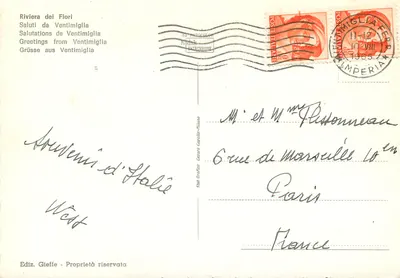 Riviera dei Fiori
Saluti da Ventimiglia
Salutations de Ventimiglia
Greetings from Ventimiglia
Grüsse aus Ventimiglia
VENTIMIGLIA
11-12
(IMPERIA)
Souvenirs d'Italie
M. et Mme Plissonneau
6 rue de Marseille 10em
Paris
France
Ediz. Gieffe - Proprietà riservata